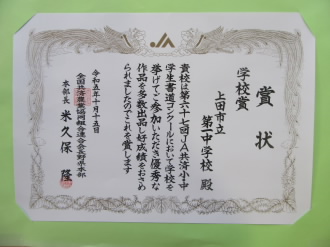 賞状
学校賞
上田市立
第一中学校 殿
貴校は第六十七回JA共済小・中
学生書道コンクールにおいて学校を
挙げてご参加いただき優秀な
作品を多数出品し好成績をおさめ
られましたのでこれを賞します
令和五年十月十五日
全国共済農業協同組合連合会長野県本部
本部長 米久保 隆